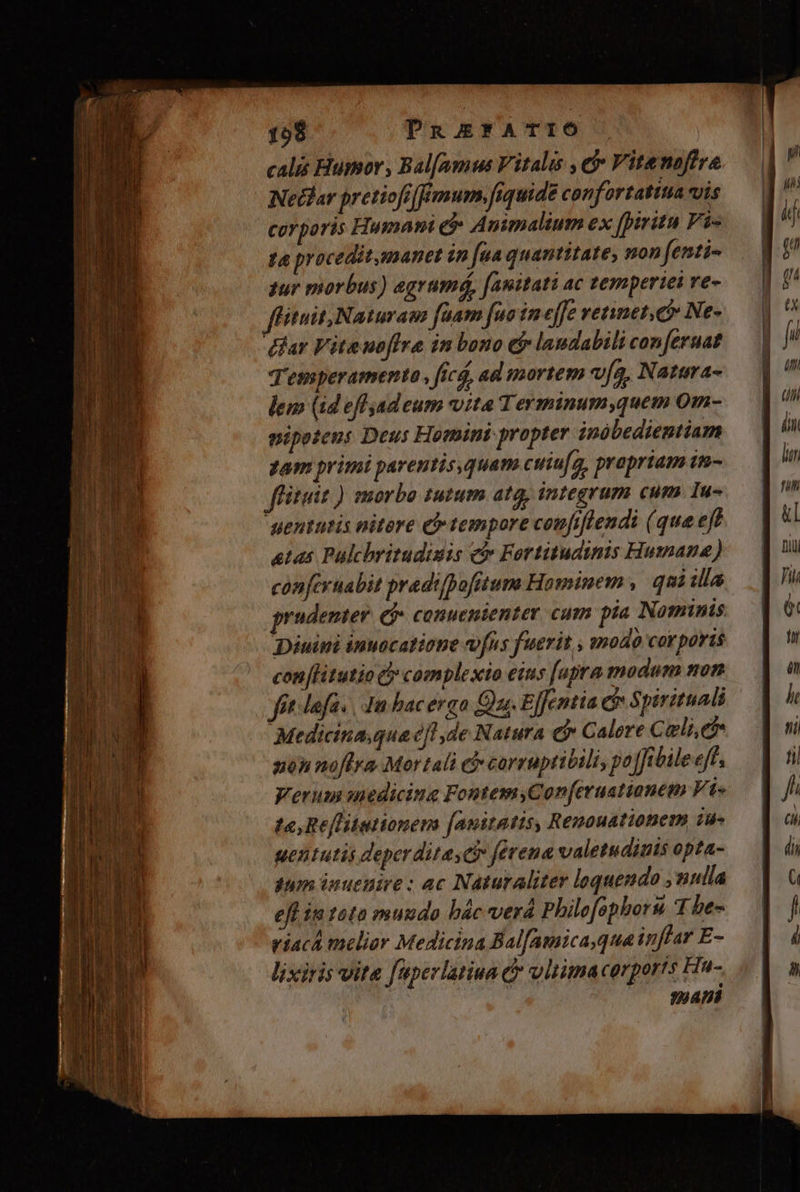 198 PRÆFATIO
calis Humor, Balſamus Vitalis, & Vitæ noſtræ
Nectar pretioſiſſimum, ſiquidẽ confortatiua vis
corporis Humani & Animalium ex ſpiritu Vi-
tæ procedit, manet in ſua quantitate, non ſenti-
tur morbus) ægrumq́, ſanitati ac temperiei re-
ſtituit, Naturam ſuam ſuo in eſſe retinet, & Ne-
ctar Vitæ noſtræ in bono & laudabili conſeruat
Temperamento, ſicq́, ad mortem vſq́, Natura-
lem (id eſt, ad eum vitæ Terminum, quem Om-
nipotens Deus Homini propter inobedientiam
tam primi parentis, quam cuiuſq́, propriam in-
ſtituit) morbo tutum atq́, integrum cum Iu-
uentutis nitore & tempore conſiſtendi (quæ eſt
ætas Pulchritudinis & Fortitudinis Humanæ)
conſeruabit prædiſpoſitum Hominem, qui illa
prudenter & conuenienter cum pia Nominis
Diuini inuocatione vſus fuerit, modò corporis
conſtitutio & complexio eius ſupra modum non
ſit læſa. In hac ergo Qu. Eſſentia & Spirituali
Medicina, quæ eſt, de Natura & Calore Cæli, &
non noſtra Mortali & corruptibili, poſſibile eſt,
Verum medicinæ Fontem, Conſeruationem Vi-
tæ, Reſtitutionem ſanitatis, Renouationem iu-
uentutis deperditæ, & ſerenæ valetudinis opta-
tum inuenire: ac Naturaliter loquendo, nulla
eſt in toto mundo hâc verâ Philoſophorũ The-
riacâ melior Medicina Balſamica, quæ inſtar E-
lixiris vitæ ſuperlatiua & vltima corporis Hu-
mani